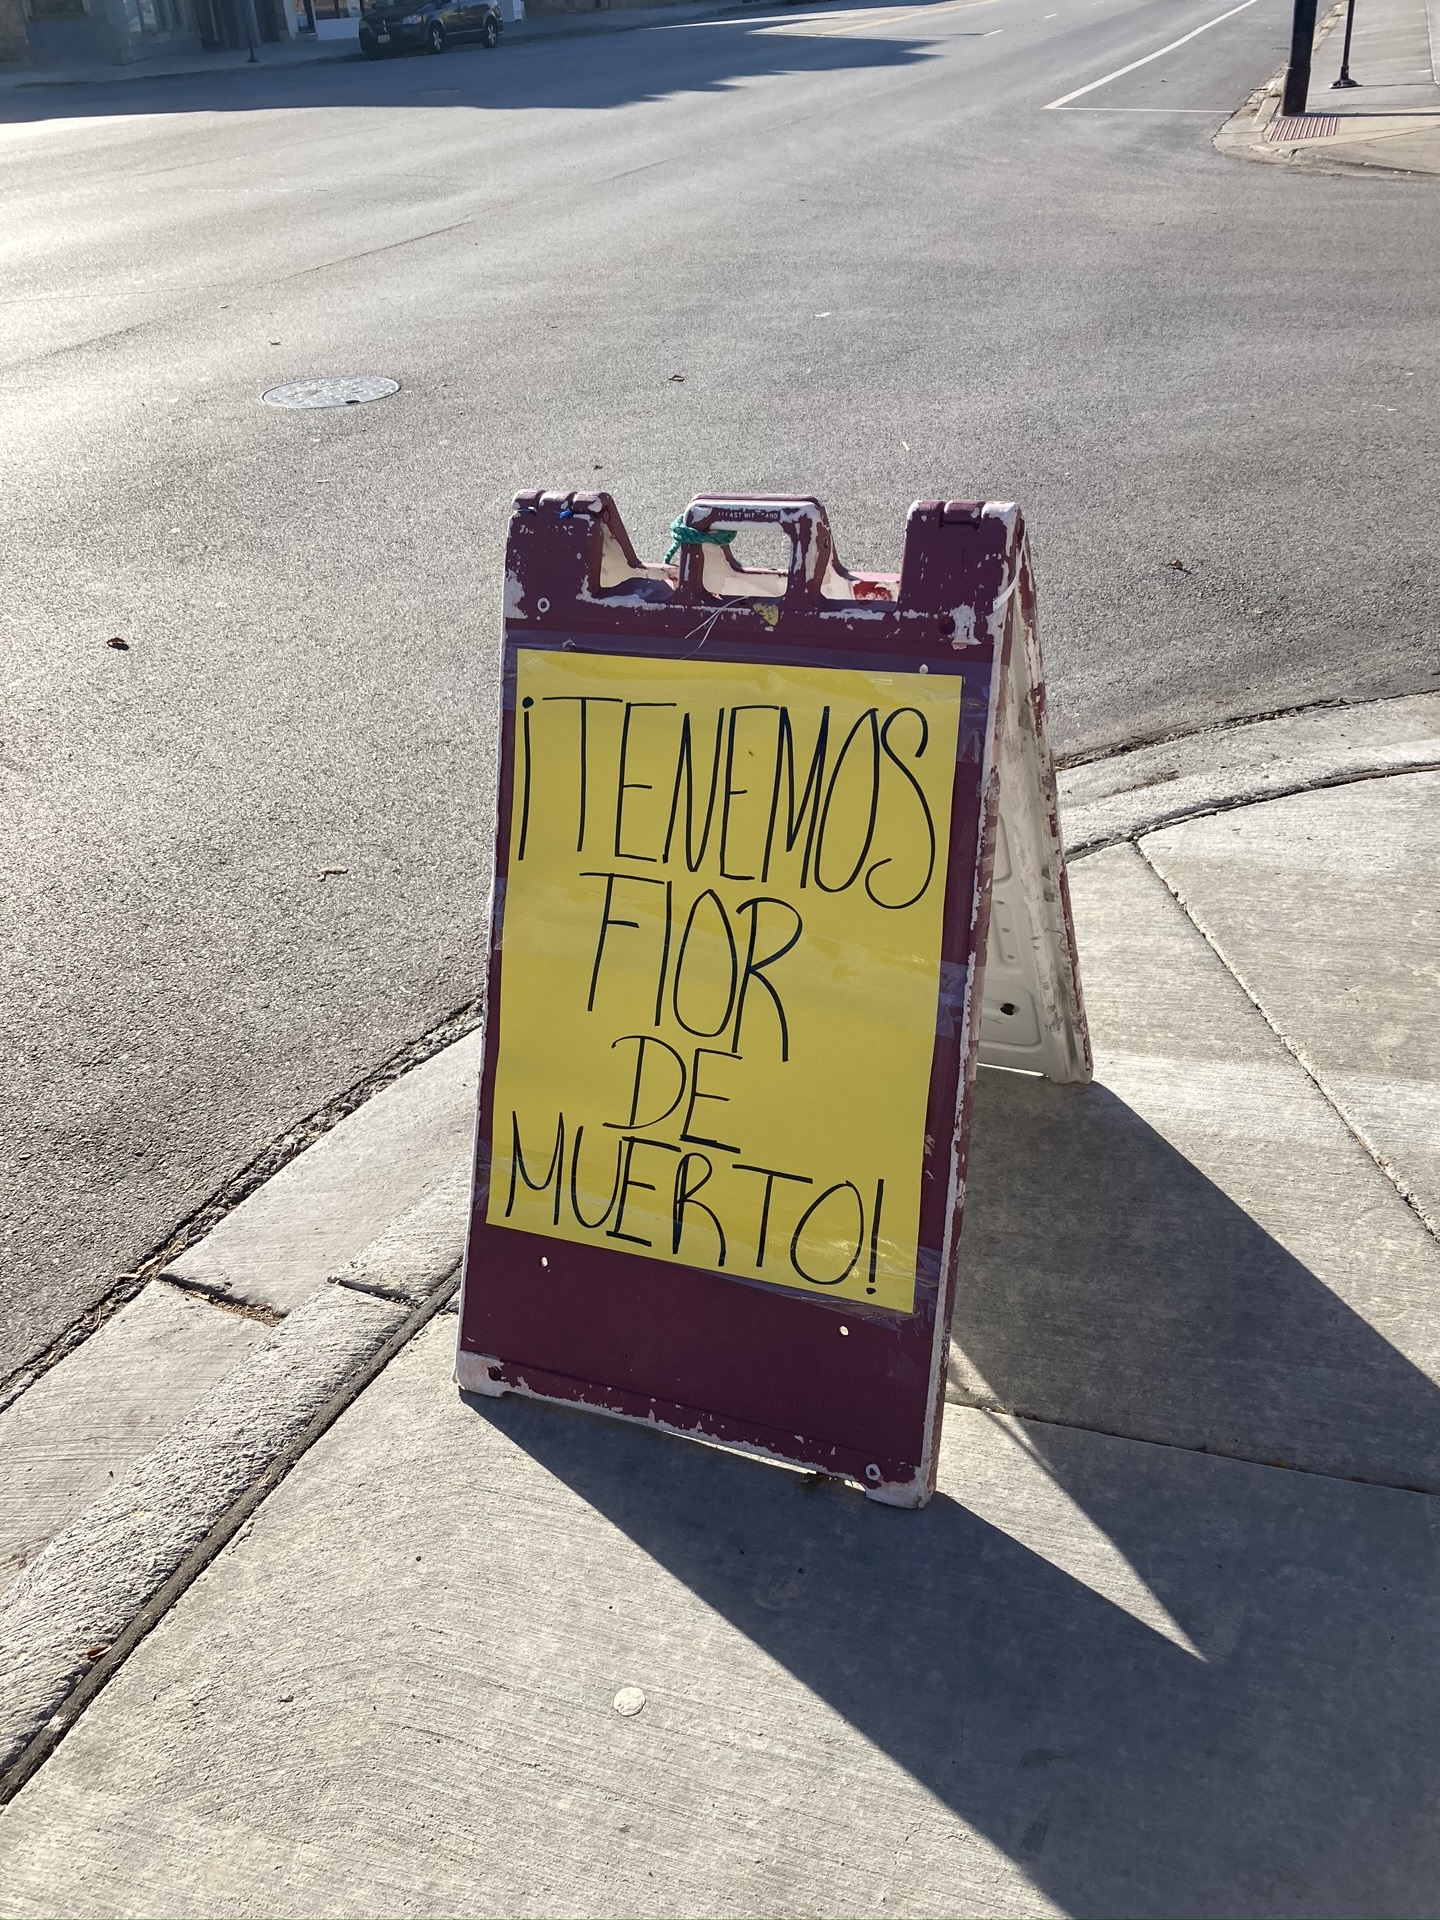 ¡TENEMOS
FIOR
DE
MUERTO!